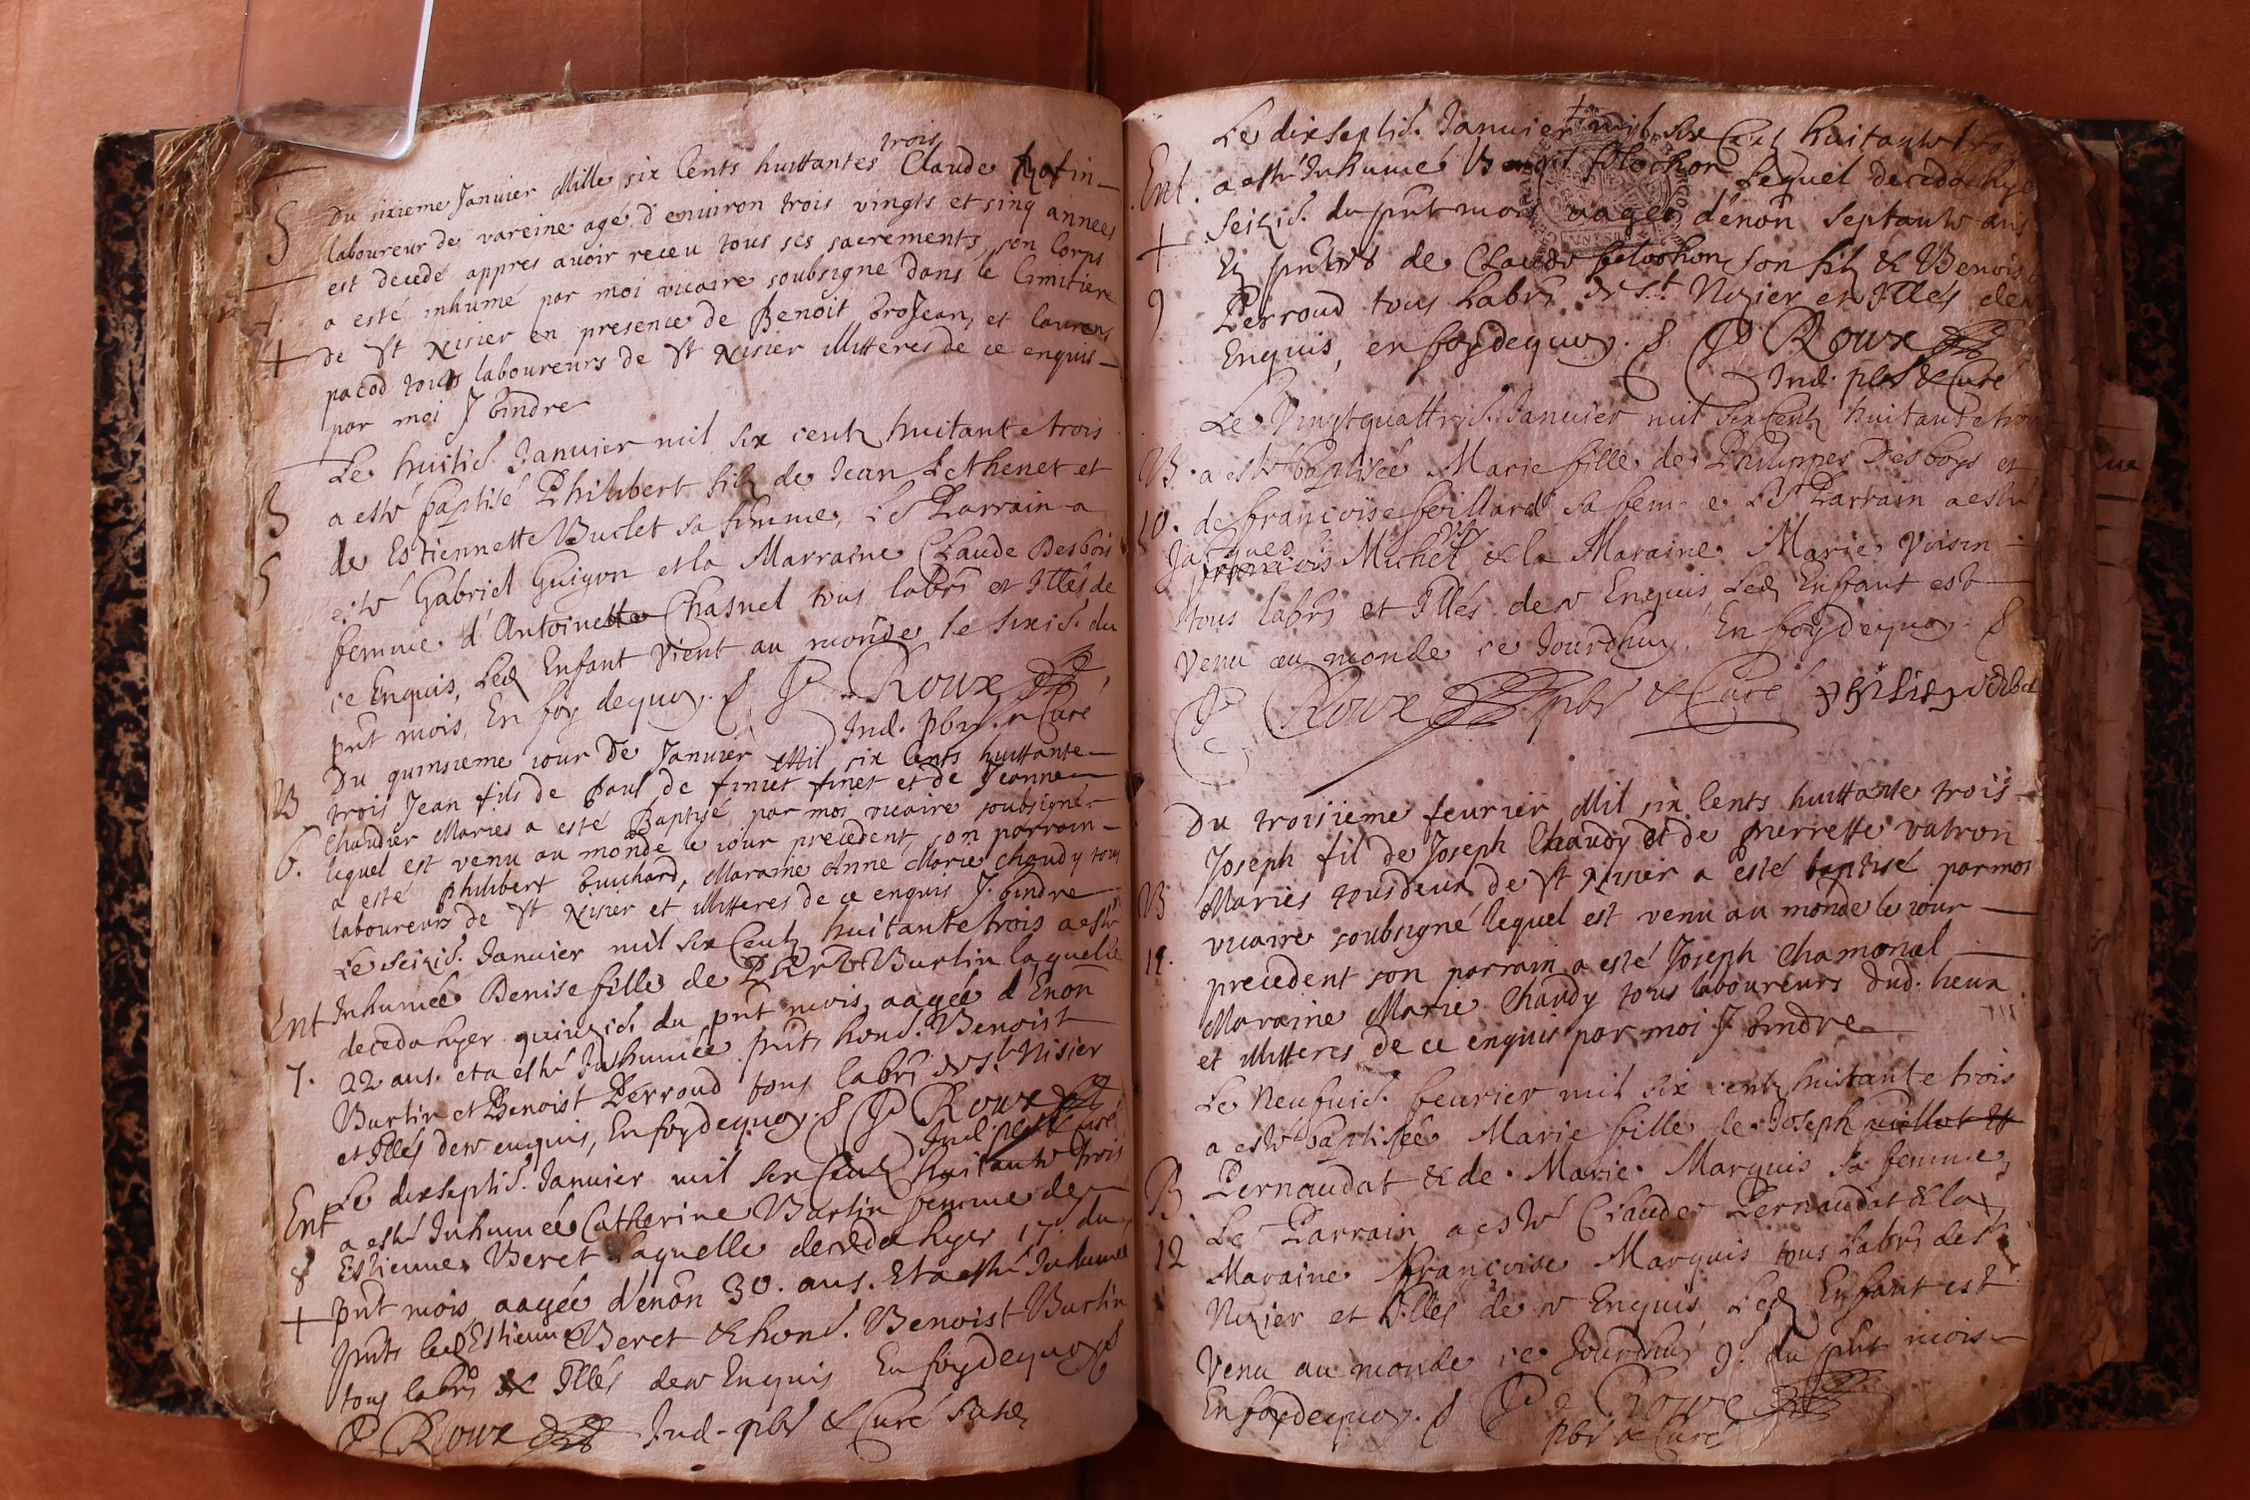 trois
Du sixieme Janvier Mille six Cents huittantes Claude
5 laboureur de vareine agé d'environ trois vingts et sinq années
est decedé appres avoir receu tous ses sacrements, son Corps
a esté inhumé par moi vicaire soubsigné dans le Cimitiere
de St Nisier en presence de Benoit broJean, et laurens
pacod tous laboureurs de St Nisier illitteres de ce enquis
par moi J bindre
Le huitie. Janvier mil six centz huitante trois
B a esté baptisé Philibert filz de Jean Lethenet et
de Estiennette Buclet sa femme, Le Parrain a
5 esté Gabriel Guigon et la Marraine Claude Desbois
femme d'Antoinette Chasnel tous labrs et Illés de
ce Enquis, Led Enfant vient au monde le sixie. du
pnt mois, En foy dequoy. P Roux
Ind. pbr. & Curé
B Du quinsieme iour De Janvier Mil six Cents huittante
trois Jean fils de Paul de finet et de Jeanne
6. Chaudier Maries a esté Baptisé par moi vicaire soubsigné
lequel est venu au monde le iour precedent, son parrain
a esté philibert buichard, Maraine Anne Marie chaudy tous
laboureurs de St Nisier et illitteres de ce enquis J. bindre
Le seizie. Janvier mil six Centz huitante trois a esté
Ent Inhumée Denise fille de Burlin laquelle
deceda hyer quinzie. du pnt mois, aagée d'Enon
7. 22 ans. et a esté Inhumée pnts hond. Benoist
Burlin et Benoist Perroud tous labrs de St Nisier
et Illés de ce enquis, En foy dequoy. P Roux
Ind. pbr & curé
Le dixseptie. Janvier mil six Centz huitante trois
Ent a esté Inhumée Catherine Burlin femme de
8 Estienne Beret laquelle deceda hyer 17e. du
+ pnt mois aagée d'enon 30. ans. Et a esté Inhumée
pnts led Estienne Beret & hond. Benoist Burlin
tous labrs & Illés de ce Enquis En foy dequoy
P Roux Ind. pbr & Curé
Le dixseptie. Janvier mil six Centz huitante
Ent. a esté Inhumé Benoist lequel deceda hye
+ Seizie. du pnt mois aagé d'enon septante ans
Et pnts de Claude son filz & Benoist
9 Perroud tous labrs de St. Nizier et Illés de
Enquis, en foy dequoy. P Roux
Ind. pbr & Curé
Le Vingtquattrie. Janvier mil six Centz huitante
B. a esté baptisée Marie fille de Philippes Desboys et
10. de françoise foillard sa femme Le Parrain a esté
Jacques
Michel & la Maraine Marie Voisin
tous labrs et Illés de ce Enquis, Led Enfant est
Venu au monde ce Jourdhuy, En foy dequoy.
P Roux pbr & Curé
Du troisieme fevrier Mil six Cents huittante trois
Joseph fil de Joseph Chaudy et de pierrette vatron
B Mariés tous deux de St Nisier a esté baptisé par moi
vicaire soubsigné lequel est venu au monde le iour
11. precedent son parrain a esté Joseph Chamonal
Maraine Marie Chaudy tous laboureurs dud. lieux
et illitteres de ce enquis par moi J bindre
Le Neufvie. fevrier mil six centz huitante trois
a esté baptisée Marie fille de Joseph
B Pernaudat & de Marie Marquis sa femme,
Le Parrain a esté Claude Pernaudat & la
12 Maraine françoise Marquis tous labrs de St
Nizier et Illés de ce Enquis Led Enfant est
Venu au monde ce Jourdhuy 9e. du pnt mois
En foy dequoy. P Roux
pbr & Curé